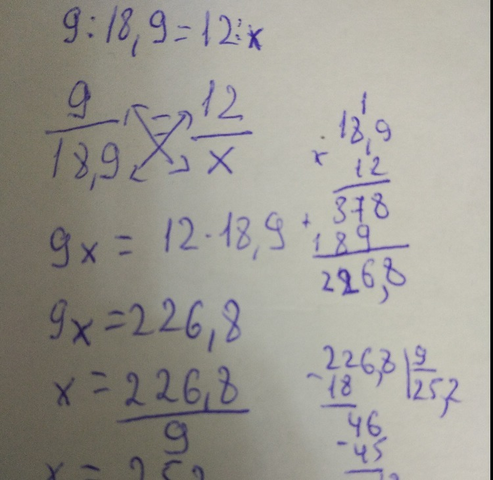 9:18,9=12:x
9/18,9 = 12/x
9x = 12·18,9
9x=226,8
x = 226,8/9
x = 252
18,9
x 12
378
+ 189
226,8
226,8 | 9
- 18 25,2
46
- 45